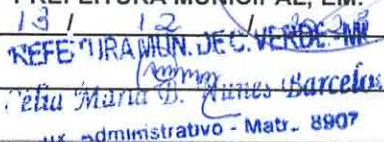 PREFEITURA MUNICIPAL, EM:
13 / 12 /
PREFEITURA MUN. DE C. VERDE - MG
Célia Maria B. Nunes Barcelos
Aux. administrativo - Matr. 8907